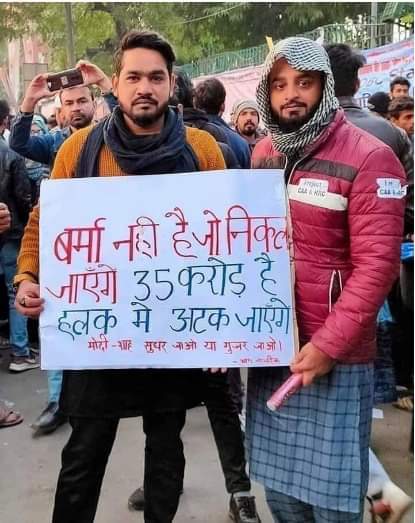 बर्मा नही है जो निकल
जाएँगे 35 करोड़ है
हलक मे अटक जाएंगे
मोदी - शाह सुधर जाओ या गुजर जाओ।
CAA & NRC
CAA &